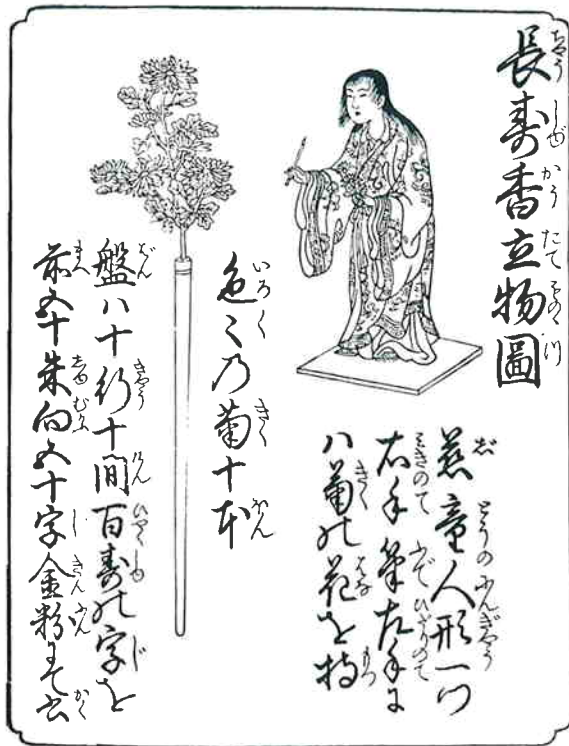 長寿香立物圖
慈童人形一つ
右手筆左手に
ハ菊の花を持
色々乃菊十本
盤ハ十行十間百寿の字を
前五十朱向五十字金粉にて書